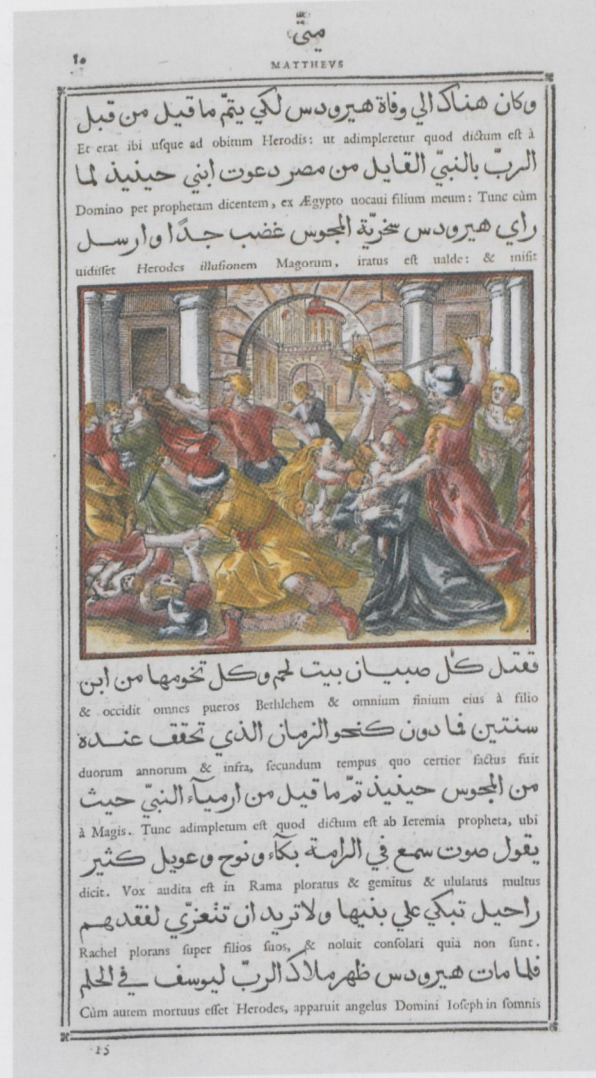 متّي
٢٠
MATTHEVS
وكان هناك الي وفاة هيرودس لكي يتمّ ما قيل من قبل
Et erat ibi uſque ad obitum Herodis: ut adimpleretur quod dictum eſt à
الربّ بالنبيّ القايل من مصر دعوت ابني حينيذ لما
Domino per prophetam dicentem, ex Ægypto uocaui filium meum: Tunc cùm
راي هيرودس سخريّة المجوس غضب جدًا وارسل
uidiſſet Herodes illuſionem Magorum, iratus eſt ualde: & miſit
فقتل كل صبيان بيت لحم وكل تخومها من ابن
& occidit omnes pueros Bethlehem & omnium finium eius à filio
سنتين فما دون كنحو الزمان الذي تحقق عنده
duorum annorum & infra, ſecundum tempus quo certior factus fuit
من المجوس حينيذ تمّ ما قيل من ارمياء النبيّ حيث
à Magis. Tunc adimpletum eſt quod dictum eſt ab Ieremia propheta, ubi
يقول صوت سمع في الرامة بكاء ونوح وعويل كثير
dicit. Vox audita eſt in Rama ploratus & gemitus & ululatus multus
راحيل تبكي علي بنيها ولا تريد ان تتعزّي لفقدهم
Rachel plorans ſuper filios ſuos, & noluit conſolari quia non ſunt.
فلما مات هيرودس ظهر ملاك الربّ ليوسف في الحلم
Cùm autem mortuus eſſet Herodes, apparuit angelus Domini Ioſeph in ſomnis
15